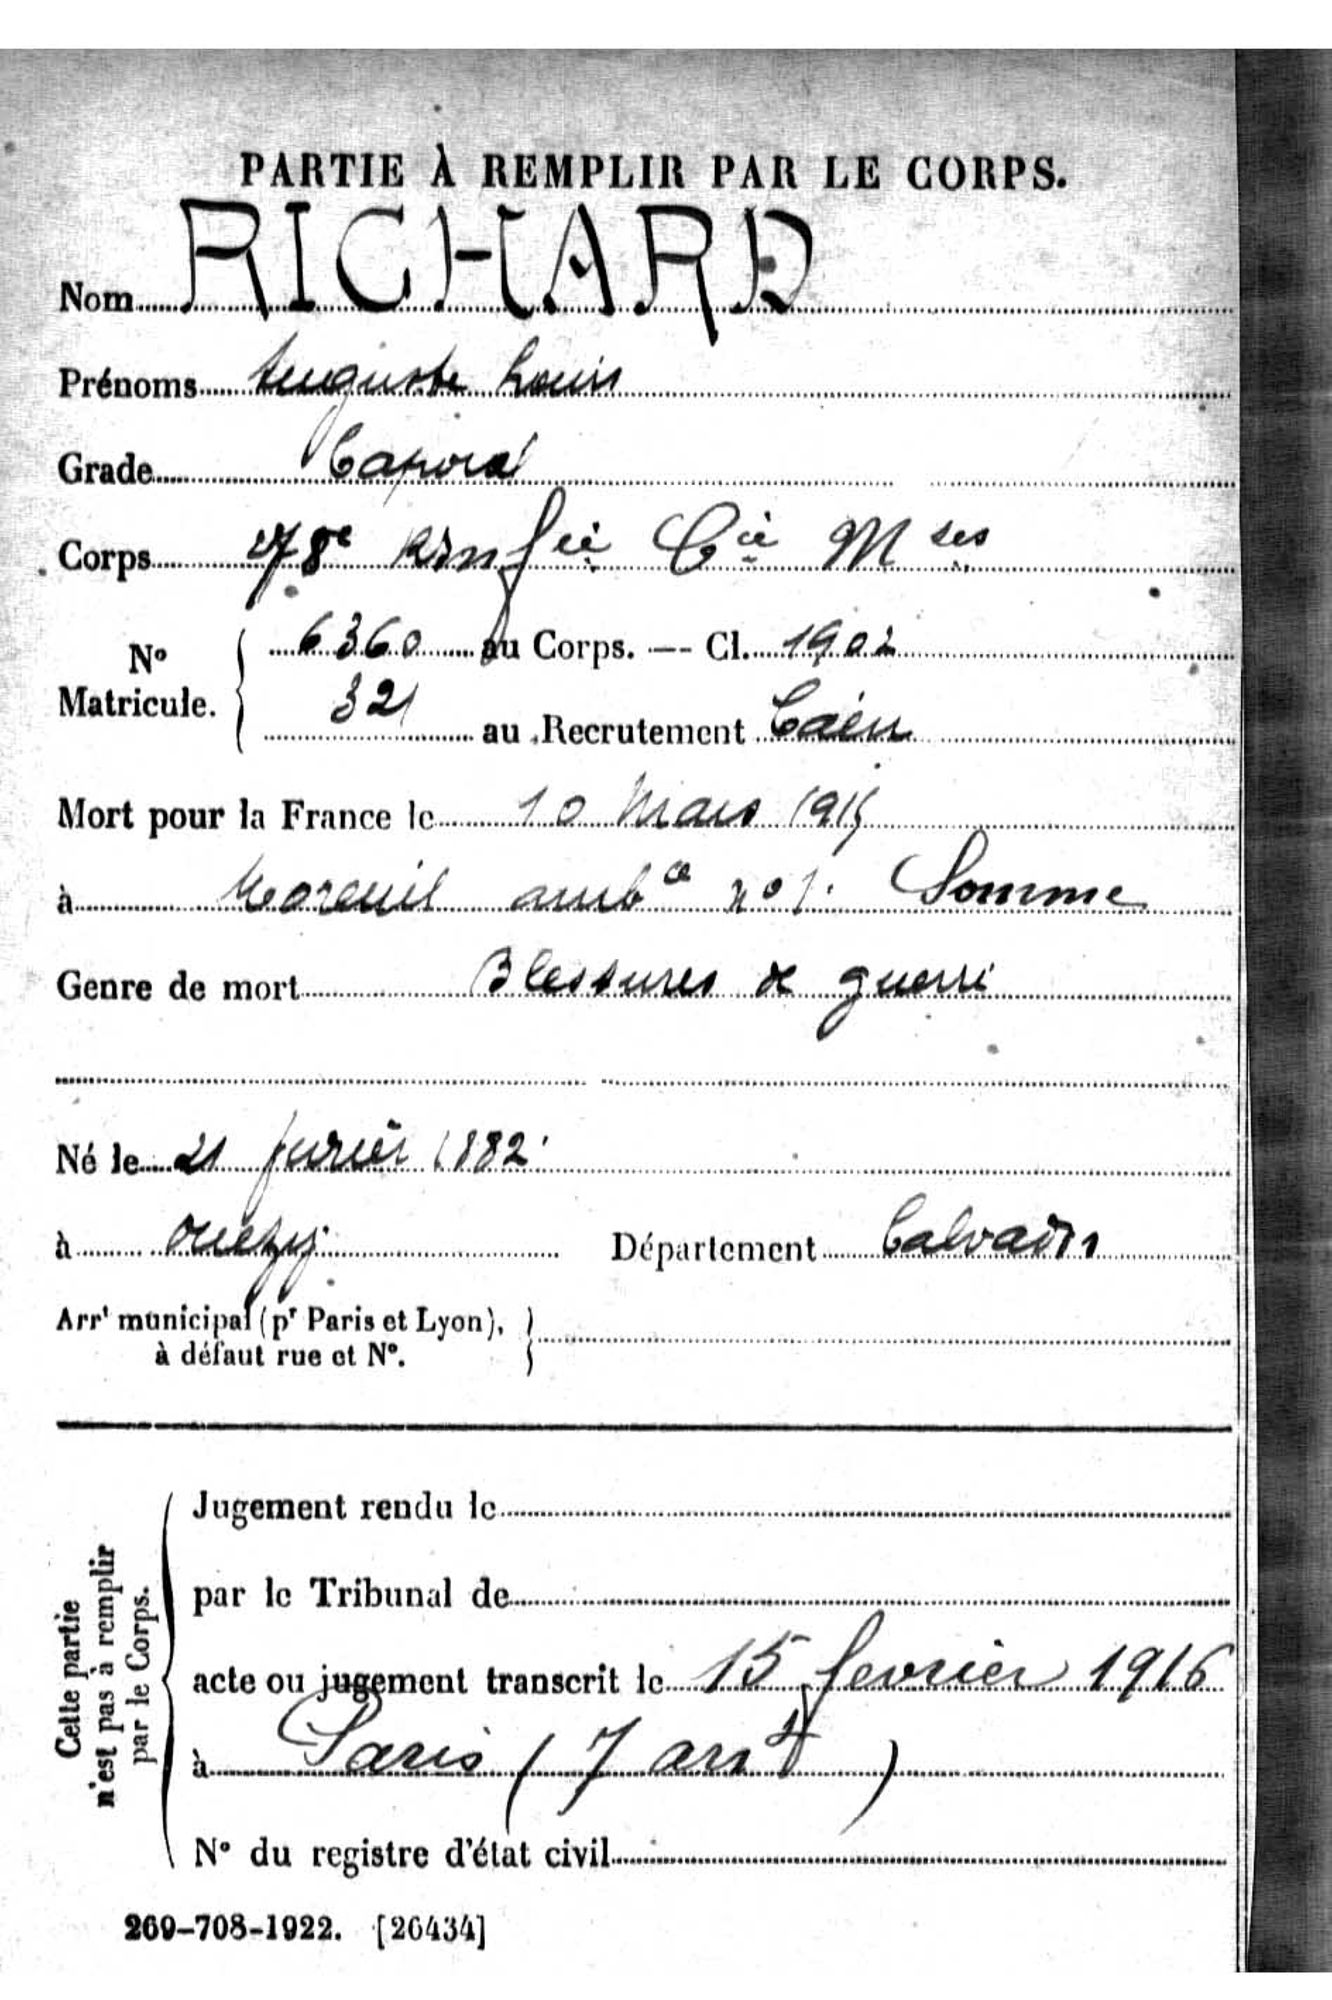 PARTIE À REMPLIR PAR LE CORPS.
Nom RICHARD
Prénoms Auguste Louis
Grade Caporal
Corps 78e Rinfie Cie Mses
N° Matricule. 6360 au Corps. — Cl. 1902
321 au Recrutement Caen
Mort pour la France le 10 Mars 1915
à Moreuil ambce no 1. Somme
Genre de mort Blessures de guerre
Né le 21 fevrier 1882
à Ouezy Département Calvados
Arrt municipal (pr Paris et Lyon),
à défaut rue et N°.
Cette partie
n'est pas à remplir
par le Corps.
Jugement rendu le
par le Tribunal de
acte ou jugement transcrit le 15 fevrier 1916
à Paris (7 arrt)
N° du registre d'état civil
269-708-1922. [26434]